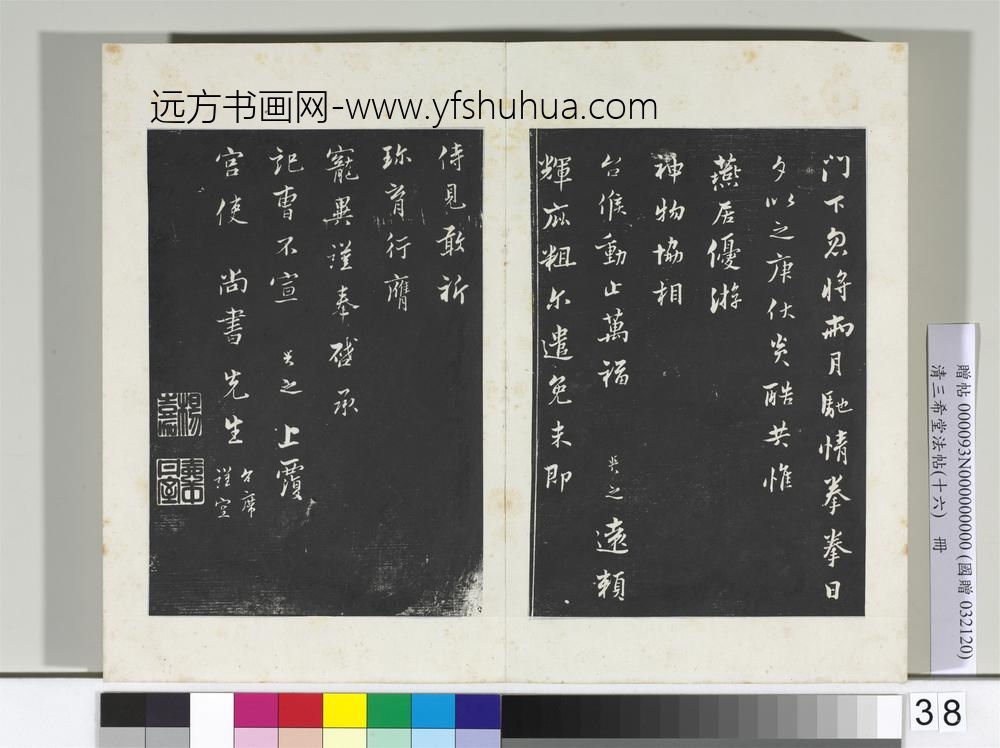 远方书画网-www.yfshuhua.com
门下忽将兩月馳情拳拳日
夕以之庚伏炎酷共惟
燕居優游
神物協相
台候動止萬福 奐之遠賴
輝庇粗尔遣免未即
侍見敢祈
珎育行膺
寵異謹奉啓承
記曹不宣 奐之上覆
宫使 尚書先生 台席
謹空
贈帖 000093N000000000 (國贈 032120)
清三希堂法帖(十六) 冊
38